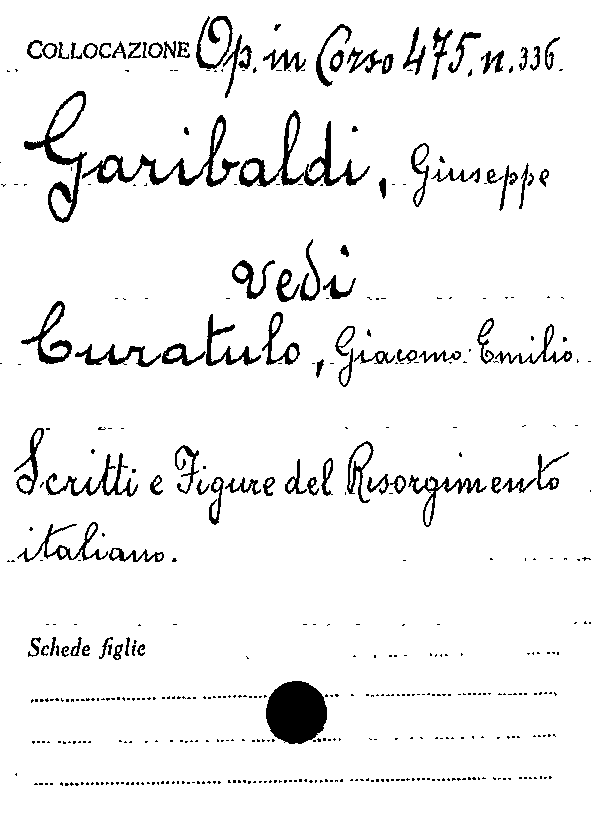 COLLOCAZIONE Op. in Corso 475. n. 336.
Garibaldi, Giuseppe
vedi
Curatulo, Giacomo Emilio.
Scritti e Figure del Risorgimento
italiano.
Schede figlie